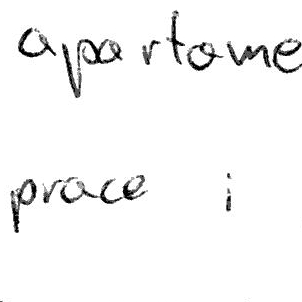 apartame
prace i